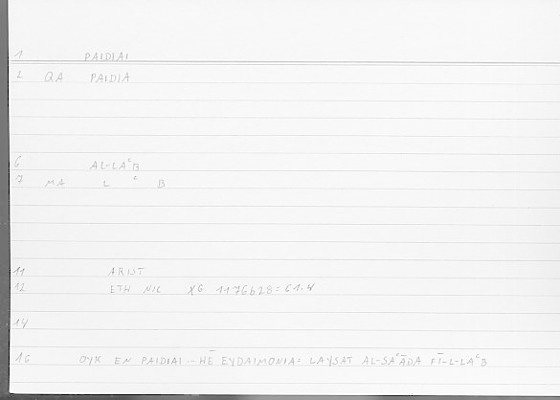 1 PAIDIAI
2 QA PAIDIA
6 AL-LAᶜB
7 MA L ᶜ B
11 ARIST
12 ETH NIC X6 1176b28=61.4
14
16 OYK EN PAIDIAI -- HĒ EYDAIMONIA= LAYSAT AL-SAᶜĀDA FĪ-L-LAᶜB